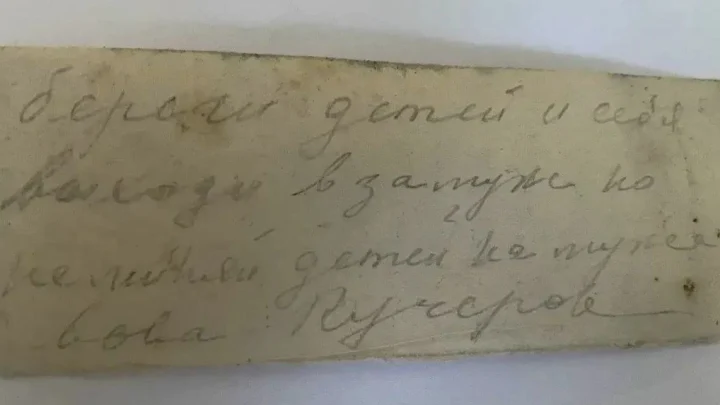 береги детей и себя
выходи взамуж но
не миняй детей на мужа
вова Кучеров